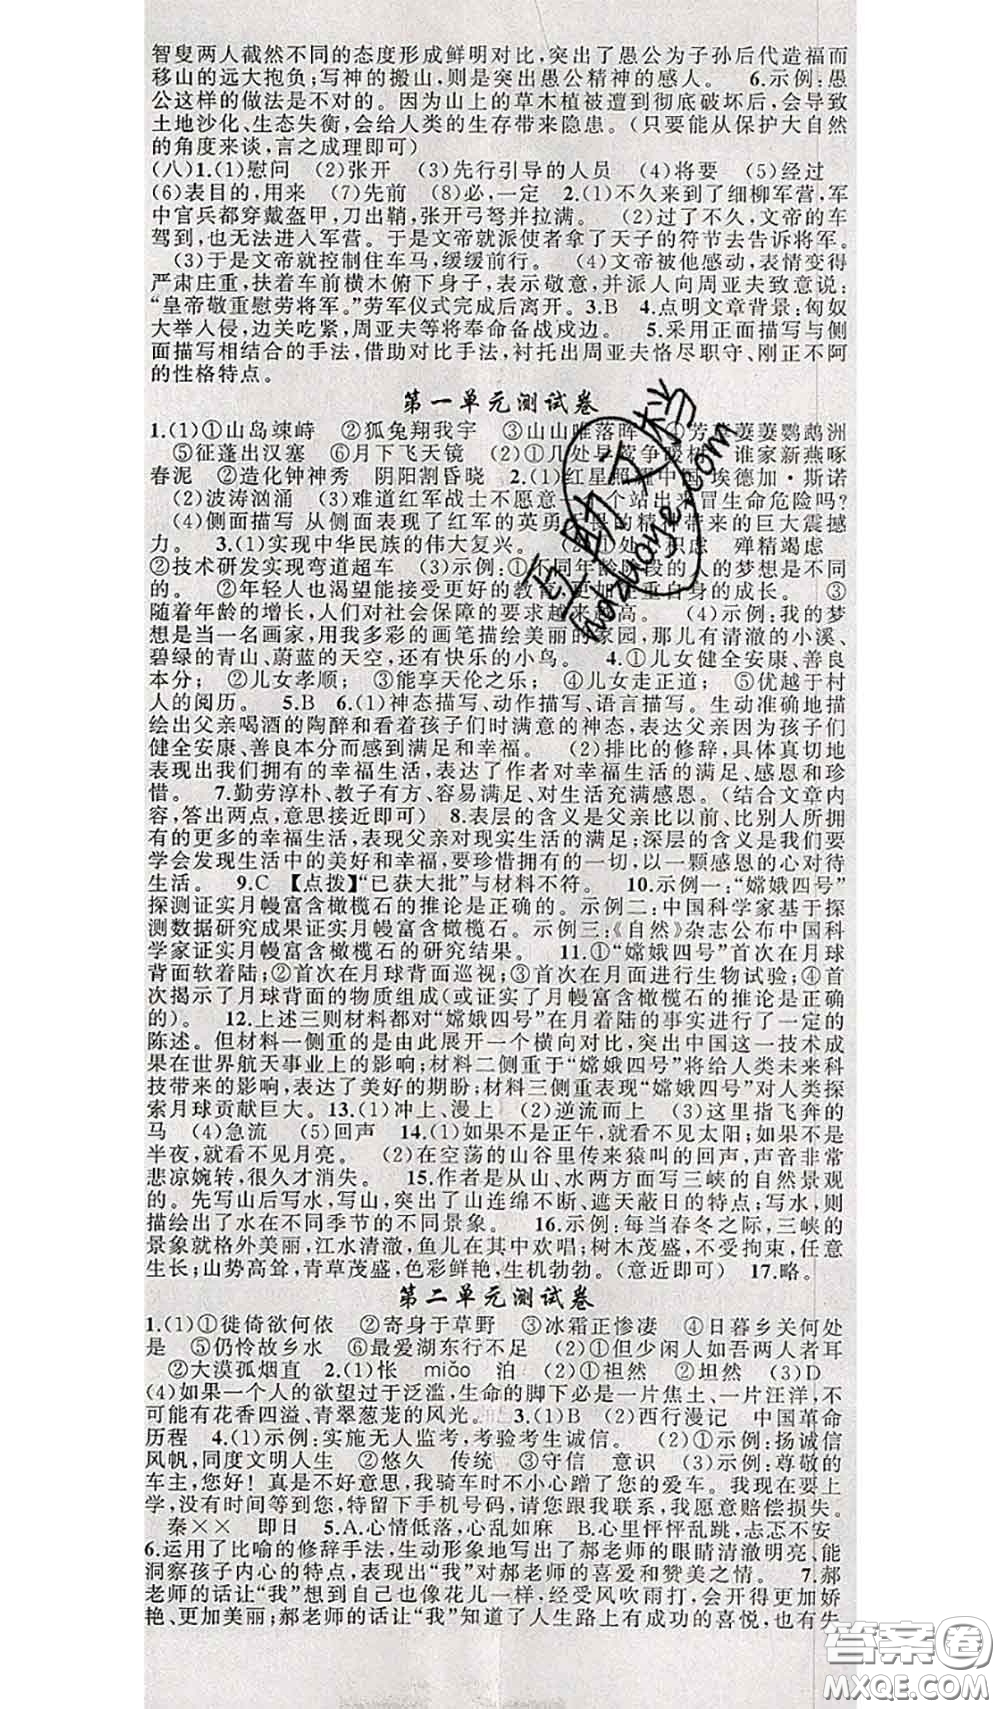 智叟两人截然不同的态度形成鲜明对比,突出了愚公为子孙后代造福而
移山的远大抱负;写神的搬山,则是突出愚公精神的感人。 6.示例:愚
公这样的做法是不对的。因为山上的草木植被遭到彻底破坏后,会导致
土地沙化、生态失衡,会给人类的生存带来隐患。(只要能从保护大自然
的角度来谈,言之成理即可)
(八)1.(1)慰问 (2)张开 (3)先行引导的人员 (4)将要 (5)经过
(6)表目的,用来 (7)先前 (8)必,一定 2.(1)不久来到了细柳军营,军
中官兵都穿戴盔甲,刀出鞘,张开弓弩并拉满。 (2)过了不久,文帝的车
驾到,也无法进入军营。于是文帝就派使者拿了天子的符节去告诉将军。
(3)于是文帝就控制住车马,缓缓前行。 (4)文帝被他感动,表情变得
严肃庄重,扶着车前横木俯下身子,表示敬意,并派人向周亚夫致意说:
“皇帝敬重慰劳将军。”劳军仪式完成后离开。3.B 4.点明文章背景:匈奴
大举入侵,边关吃紧,周亚夫等将奉命备战戍边。 5.采用正面描写与侧
面描写相结合的手法,借助对比手法,衬托出周亚夫恪尽职守、刚正不阿
的性格特点。
第一单元测试卷
1.(1)①山岛竦峙 ②狐兔翔我宇 ③山山唯落晖 ④芳草萋萋鹦鹉洲
⑤征蓬出汉塞 ⑥月下飞天镜 (2)①几处早莺争暖树 谁家新燕啄
春泥 ②造化钟神秀 阴阳割昏晓 2.(1)红星照耀中国 埃德加·斯诺
(2)波涛汹涌 (3)难道红军战士不愿意一个个站出来冒生命危险吗?
(4)侧面描写 从侧面表现了红军的英勇无畏的精神带来的巨大震撼
力。 3.(1)实现中华民族的伟大复兴。 (2)①处心积虑 殚精竭虑
②技术研发实现弯道超车 (3)示例:①不同年龄阶段的人的梦想是不同
的。 ②年轻人也渴望能接受更好的教育,更加注重自身的成长。 ③
随着年龄的增长,人们对社会保障的要求越来越高。 (4)示例:我的梦
想是当一名画家,用我多彩的画笔描绘美丽的家园,那儿有清澈的小溪、
碧绿的青山、蔚蓝的天空,还有快乐的小鸟。 4.①儿女健全安康、善良
本分; ②儿女孝顺; ③能享天伦之乐; ④儿女走正道; ⑤优越于村
人的阅历。 5.B 6.(1)神态描写、动作描写、语言描写。生动准确地描
绘出父亲喝酒的陶醉和看着孩子们时满意的神态,表达父亲因为孩子们
健全安康、善良本分而感到满足和幸福。 (2)排比的修辞,具体真切地
表现出我们拥有的幸福生活,表达了作者对幸福生活的满足、感恩和珍
惜。 7.勤劳淳朴、教子有方、容易满足、对生活充满感恩。(结合文章内
容,答出两点,意思接近即可) 8.表层的含义是父亲比以前、比别人所拥
有的更多的幸福生活,表现父亲对现实生活的满足;深层的含义是我们要
学会发现生活中的美好和幸福,要珍惜拥有的一切,以一颗感恩的心对待
生活。 9.C 【点拨】“已获大批”与材料不符。 10.示例一:“嫦娥四号”
探测证实月幔富含橄榄石的推论是正确的。示例二:中国科学家基于探
测数据研究成果证实月幔富含橄榄石。示例三:《自然》杂志公布中国科
学家证实月幔富含橄榄石的研究结果。 11.①“嫦娥四号”首次在月球
背面软着陆;②首次在月球背面巡视;③首次在月面进行生物试验;④首
次揭示了月球背面的物质组成(或证实了月幔富含橄榄石的推论是正确
的)。 12.上述三则材料都对“嫦娥四号”在月着陆的事实进行了一定的
陈述。但材料一侧重的是由此展开一个横向对比,突出中国这一技术成
果在世界航天事业上的影响;材料二侧重于“嫦娥四号”将给人类未来科
技带来的影响,表达了美好的期盼;材料三侧重表现“嫦娥四号”对人类探
索月球贡献巨大。13.(1)冲上、漫上 (2)逆流而上 (3)这里指飞奔的
马 (4)急流 (5)回声 14.(1)如果不是正午,就看不见太阳;如果不是
半夜,就看不见月亮。 (2)在空荡的山谷里传来猿叫的回声,声音非常
悲凉婉转,很久才消失。 15.作者是从山、水两方面写三峡的自然景观
的。先写山后写水,写山,突出了山连绵不断、遮天蔽日的特点;写水,则
描绘出了水在不同季节的不同景象。 16.示例:每当春冬之际,三峡的
景象就格外美丽,江水清澈,鱼儿在其中欢唱;树木茂盛,不受拘束,任意
生长;山势高耸,青草茂盛,色彩鲜艳,生机勃勃。(意近即可) 17.略。
第二单元测试卷
1.(1)①徙倚欲何依 ②寄身于草野 ③冰霜正惨凄 ④日暮乡关何处
是 ⑤仍怜故乡水 ⑥最爱湖东行不足 (2)①但少闲人如吾两人者耳
②大漠孤烟直 2.(1)怅 miǎo 泊 (2)①袒然 ②坦然 (3)D
(4)如果一个人的欲望过于泛滥,生命的脚下必是一片焦土、一片汪洋,不
可能有花香四溢、青翠葱茏的风光。 3.(1)B (2)西行漫记 中国革命
历程 4.(1)示例:实施无人监考,考验考生诚信。 (2)①示例:扬诚信
风帆,同度文明人生 ②悠久 传统 ③守信 意识 (3)示例:尊敬的
车主,您好!真是不好意思,我骑车时不小心蹭了您的爱车。我现在要上
学,没有时间等到您,特留下手机号码,请您跟我联系,我愿意赔偿损失。
秦×× 即日 5.A.心情低落,心乱如麻 B.心里怦怦乱跳,忐忑不安
6.运用了比喻的修辞手法,生动形象地写出了郝老师的眼睛清澈明亮、能
洞察孩子内心的特点,表现出“我”对郝老师的喜爱和赞美之情。 7.郝
老师的话让“我”想到自己也像花儿一样,经受风吹雨打,会开得更加娇
艳、更加美丽;郝老师的话让“我”知道了人生路上有成功的喜悦,也有失
答案圈
MXQE.COM